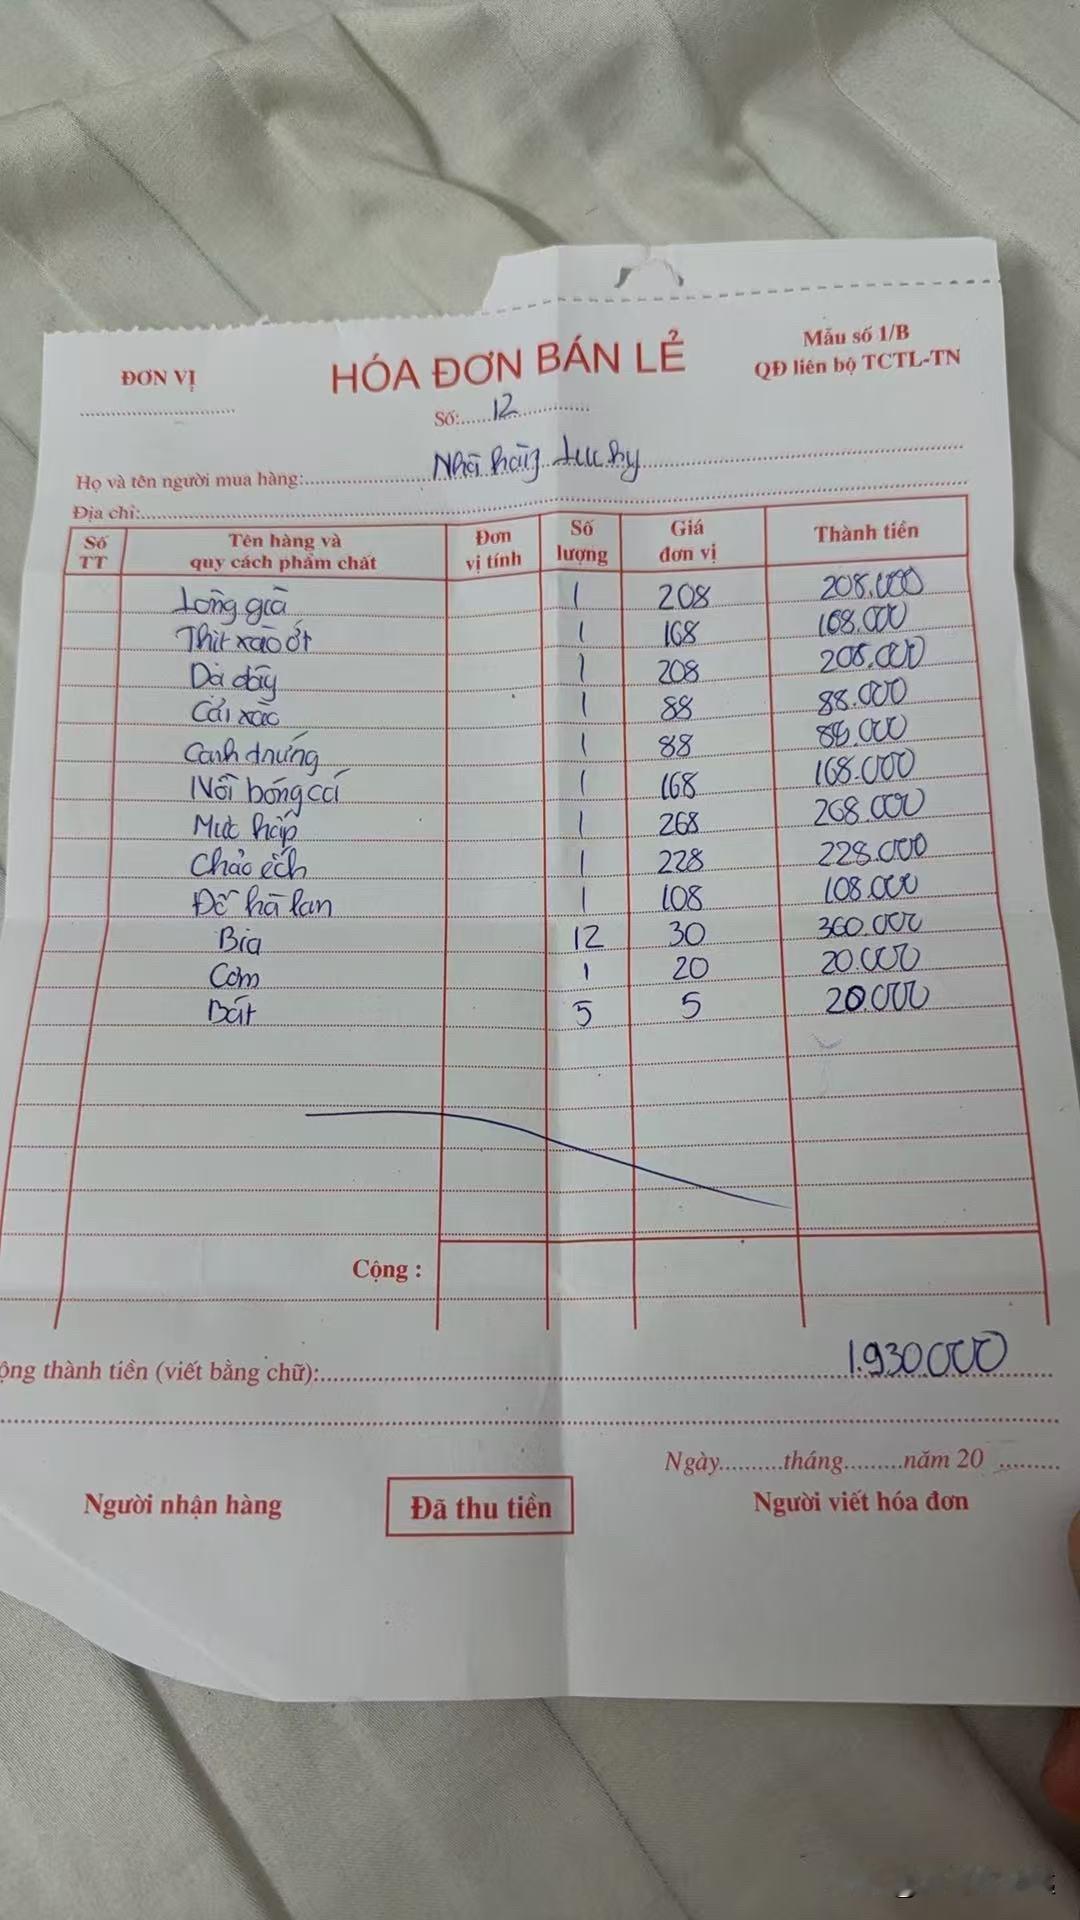 ĐƠN VỊ
HÓA ĐƠN BÁN LẺ
Mẫu số 1/B
QĐ liên bộ TCTL-TN
Số: 12
Họ và tên người mua hàng: Nhà hàng Lucky
Địa chỉ:
Số TT Tên hàng và quy cách phẩm chất Đơn vị tính Số lượng Giá đơn vị Thành tiền
Lòng già 1 208 208.000
Thịt xào ớt 1 168 168.000
Dạ dầy 1 208 208.000
Cải xào 1 88 88.000
Canh trứng 1 88 88.000
Nồi bóng cá 1 168 168.000
Mực hấp 1 268 268.000
Chảo ếch 1 228 228.000
Đỗ hà lan 1 108 108.000
Bia 12 30 360.000
Cơm 1 20 20.000
Bát 5 5 20.000
Cộng :
ộng thành tiền (viết bằng chữ): 1.930.000
Ngày tháng năm 20
Người nhận hàng
Đã thu tiền
Người viết hóa đơn